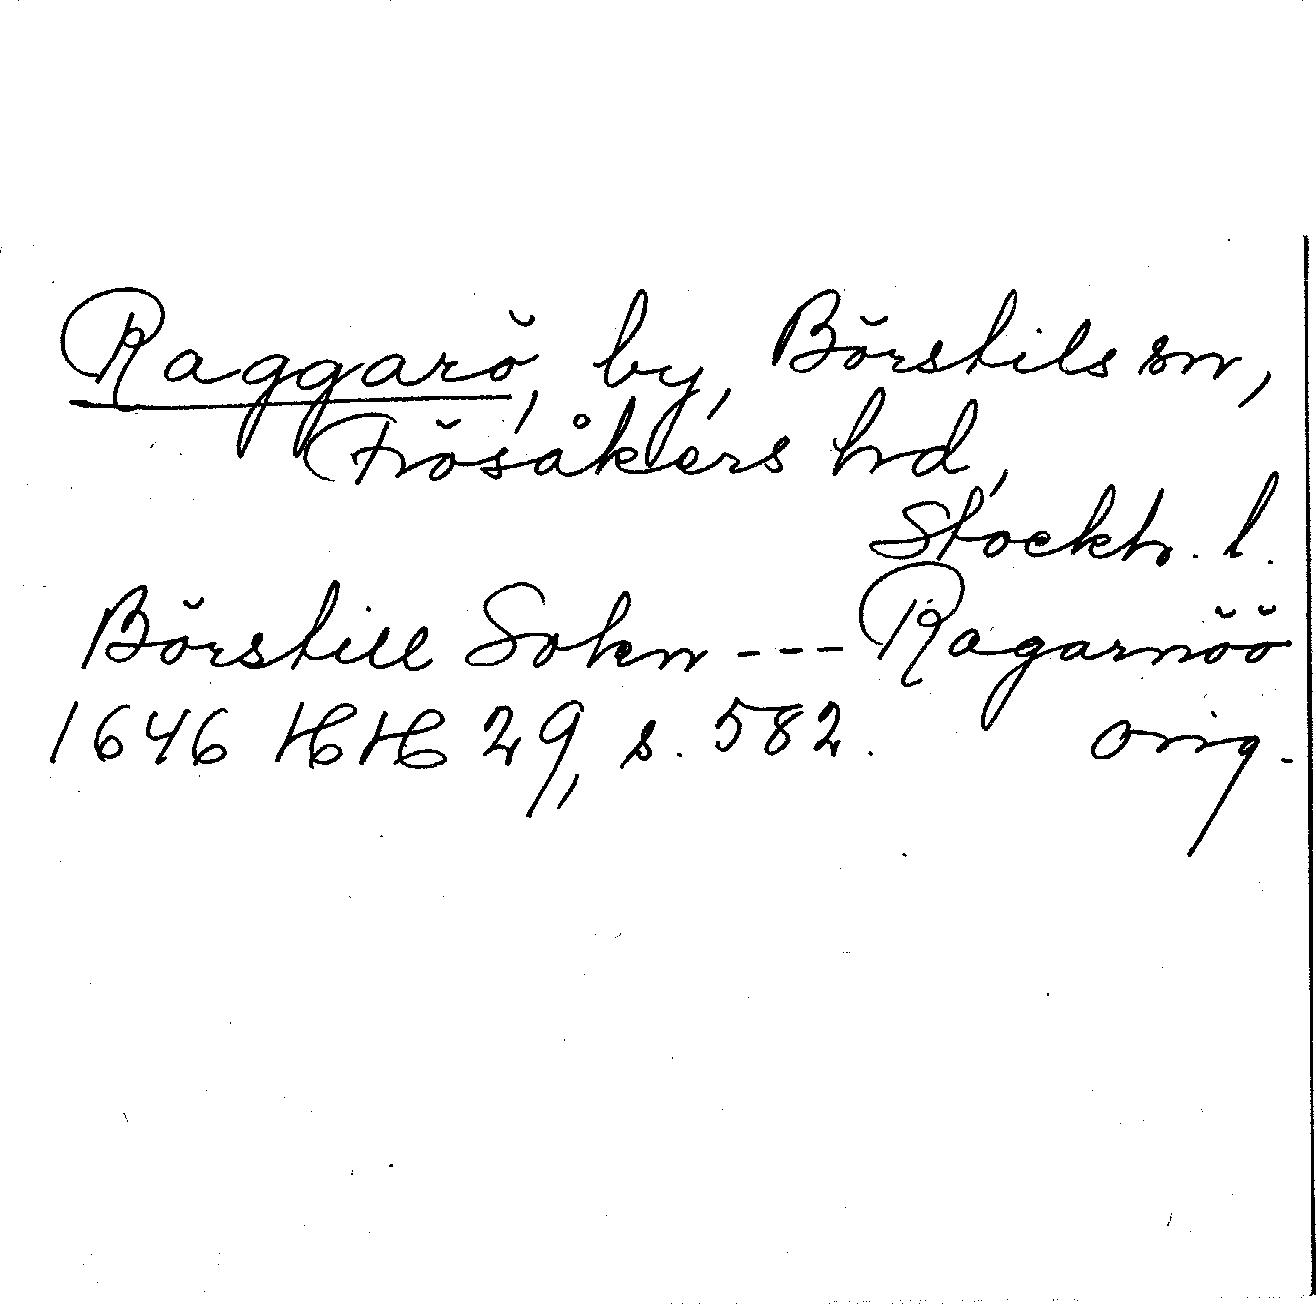 Raggarö, by, Börstils sn,
Frösåkers hd,
Stockh. l.
Börstill Sokn --- Ragarnöö
1646 HH 29, s. 582. orig.